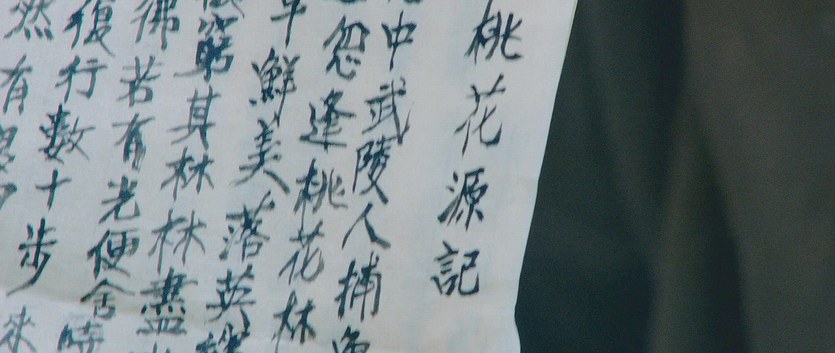 桃花源記
中武陵人捕魚
忽逢桃花林
鮮美落英
窮其林林盡
彿若有光便舍
復行數十步
然有
來